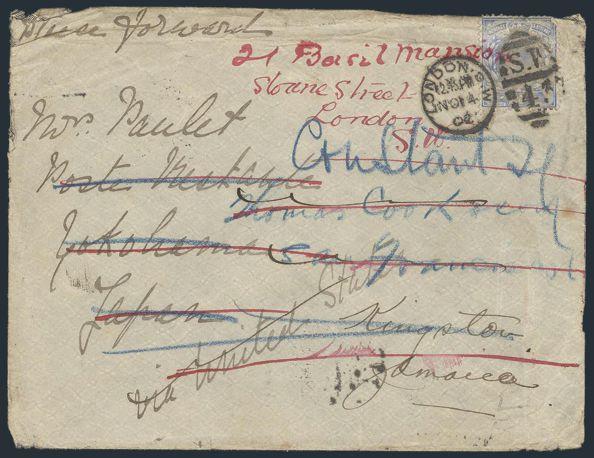 Please forward
21 Basil Mansions
Sloane Street
London
S.W.
LONDON. S.W
12.15 PM
NO 14
02
S.W.
4
Mrs Paulet
Poste Restante
Yokohama
Japan
via United States
Thomas Cook & Son
San Francisco
Kingston
Jamaica